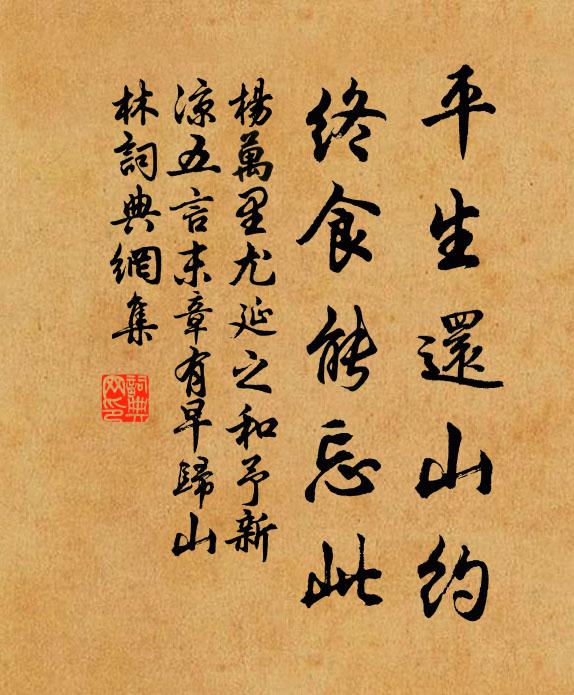 平生還山約
終食能忘此
楊萬里尤延之和予新
涼五言末章有早歸山
林詞典網集
詞典網印